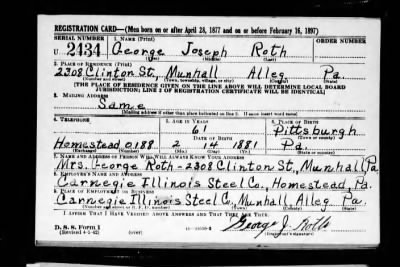 REGISTRATION CARD—(Men born on or after April 28, 1877 and on or before February 16, 1897)
SERIAL NUMBER 1. NAME (Print)
U 2434 George Joseph Roth
(First) (Middle) (Last)
2. PLACE OF RESIDENCE (Print)
2308 Clinton St., Munhall Alleg Pa.
(Number and street) (Town, township, village, or city) (County) (State)
[THE PLACE OF RESIDENCE GIVEN ON THE LINE ABOVE WILL DETERMINE LOCAL BOARD
JURISDICTION; LINE 2 OF REGISTRATION CERTIFICATE WILL BE IDENTICAL]
3. MAILING ADDRESS
Same
[Mailing address if other than place indicated on line 2. If same insert word same]
4. TELEPHONE 5. AGE IN YEARS 6. PLACE OF BIRTH
61 Pittsburgh
DATE OF BIRTH (Town or county)
Homestead 0188 2 14 1881 Pa.
(Exchange) (Number) (Mo.) (Day) (Yr.) (State or country)
7. NAME AND ADDRESS OF PERSON WHO WILL ALWAYS KNOW YOUR ADDRESS
Mrs. George Roth - 2308 Clinton St., Munhall, Pa
8. EMPLOYER'S NAME AND ADDRESS
Carnegie Illinois Steel Co., Homestead, Pa.
9. PLACE OF EMPLOYMENT OR BUSINESS
Carnegie Illinois Steel Co., Munhall, Alleg. Pa.
(Number and street or R. F. D. number) (Town) (County) (State)
I AFFIRM THAT I HAVE VERIFIED ABOVE ANSWERS AND THAT THEY ARE TRUE.
George J. Roth
D. S. S. Form 1
(Revised 4-1-42) (over) (Registrant's signature)